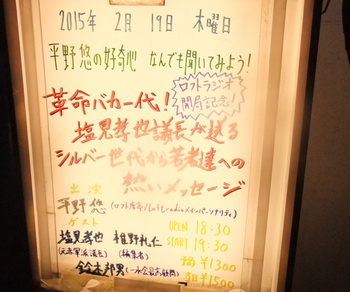 2015年 2月 19日 木曜日
平野悠の好奇心 なんでも聞いてみよう!
ロフトラジオ
開局記念!
革命バカ一代!
塩見孝也議長が送る
シルバー世代から若者達への
熱いメッセージ
出演
平野悠
ゲスト
塩見孝也 椎野礼仁
(元赤軍派議長) (編集者)
鈴木邦男
OPEN 18:30
START 19:30
予約 ¥1300
当日 ¥1500